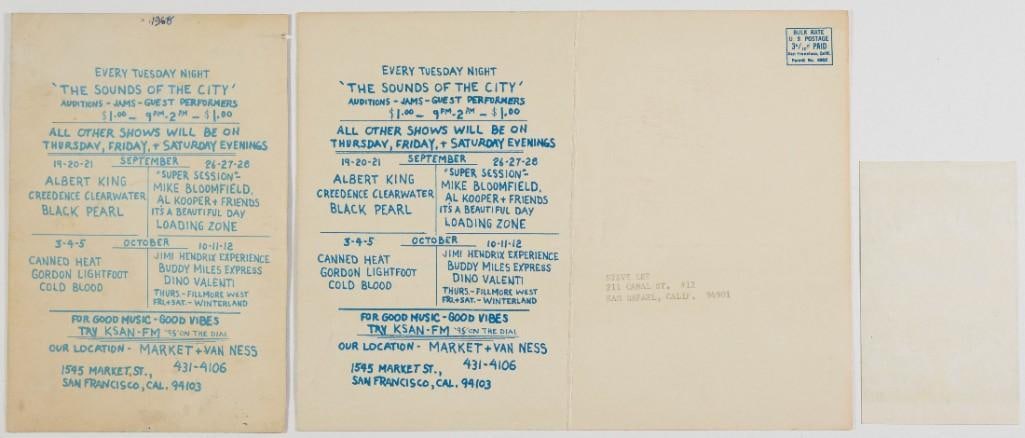 1968
EVERY TUESDAY NIGHT
'THE SOUNDS OF THE CITY'
AUDITIONS - JAMS - GUEST PERFORMERS
$1.00 - 9PM-2AM - $1.00
ALL OTHER SHOWS WILL BE ON
THURSDAY, FRIDAY, + SATURDAY EVENINGS
19-20-21 SEPTEMBER 26-27-28
ALBERT KING
CREEDENCE CLEARWATER
BLACK PEARL
"SUPER SESSION"-
MIKE BLOOMFIELD,
AL KOOPER + FRIENDS
IT'S A BEAUTIFUL DAY
LOADING ZONE
3-4-5 OCTOBER 10-11-12
CANNED HEAT
GORDON LIGHTFOOT
COLD BLOOD
JIMI HENDRIX EXPERIENCE
BUDDY MILES EXPRESS
DINO VALENTI
THURS.-FILLMORE WEST
FRI.+SAT.-WINTERLAND
FOR GOOD MUSIC-GOOD VIBES
TRY KSAN-FM '95' ON THE DIAL
OUR LOCATION - MARKET + VAN NESS
1545 MARKET ST., 431-4106
SAN FRANCISCO, CAL. 94103
EVERY TUESDAY NIGHT
'THE SOUNDS OF THE CITY'
AUDITIONS - JAMS - GUEST PERFORMERS
$1.00 - 9PM-2AM - $1.00
ALL OTHER SHOWS WILL BE ON
THURSDAY, FRIDAY, + SATURDAY EVENINGS
19-20-21 SEPTEMBER 26-27-28
ALBERT KING
CREEDENCE CLEARWATER
BLACK PEARL
"SUPER SESSION"-
MIKE BLOOMFIELD,
AL KOOPER + FRIENDS
IT'S A BEAUTIFUL DAY
LOADING ZONE
3-4-5 OCTOBER 10-11-12
CANNED HEAT
GORDON LIGHTFOOT
COLD BLOOD
JIMI HENDRIX EXPERIENCE
BUDDY MILES EXPRESS
DINO VALENTI
THURS.-FILLMORE WEST
FRI.+SAT.-WINTERLAND
FOR GOOD MUSIC-GOOD VIBES
TRY KSAN-FM '95' ON THE DIAL
OUR LOCATION - MARKET + VAN NESS
1545 MARKET ST., 431-4106
SAN FRANCISCO, CAL. 94103
BULK RATE
U S POSTAGE
PAID
San Francisco, Calif.
Permit No.
STEVE LEE
211 CANAL ST. #12
SAN RAFAEL, CALIF. 94901